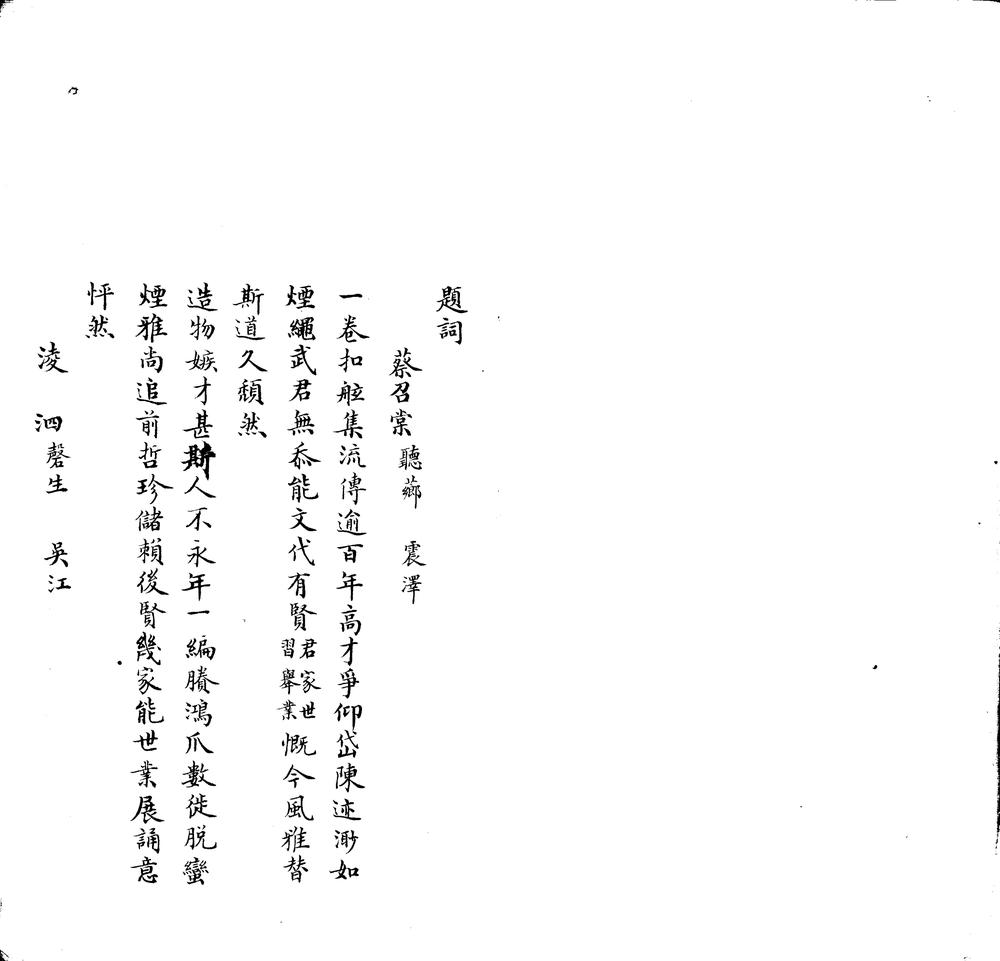 題詞
蔡召棠聽薌 震澤
一卷扣舷集流傳逾百年高才爭仰岱陳迹渺如
煙繩武君無忝能文代有賢君家世習舉業慨今風雅替
斯道久頽然
造物嫉才甚斯人不永年一編賸鴻爪數徙脫蠻
煙雅尚追前哲珍儲賴後賢幾家能世業展誦意
怦然
淩 泗磬生 吳江